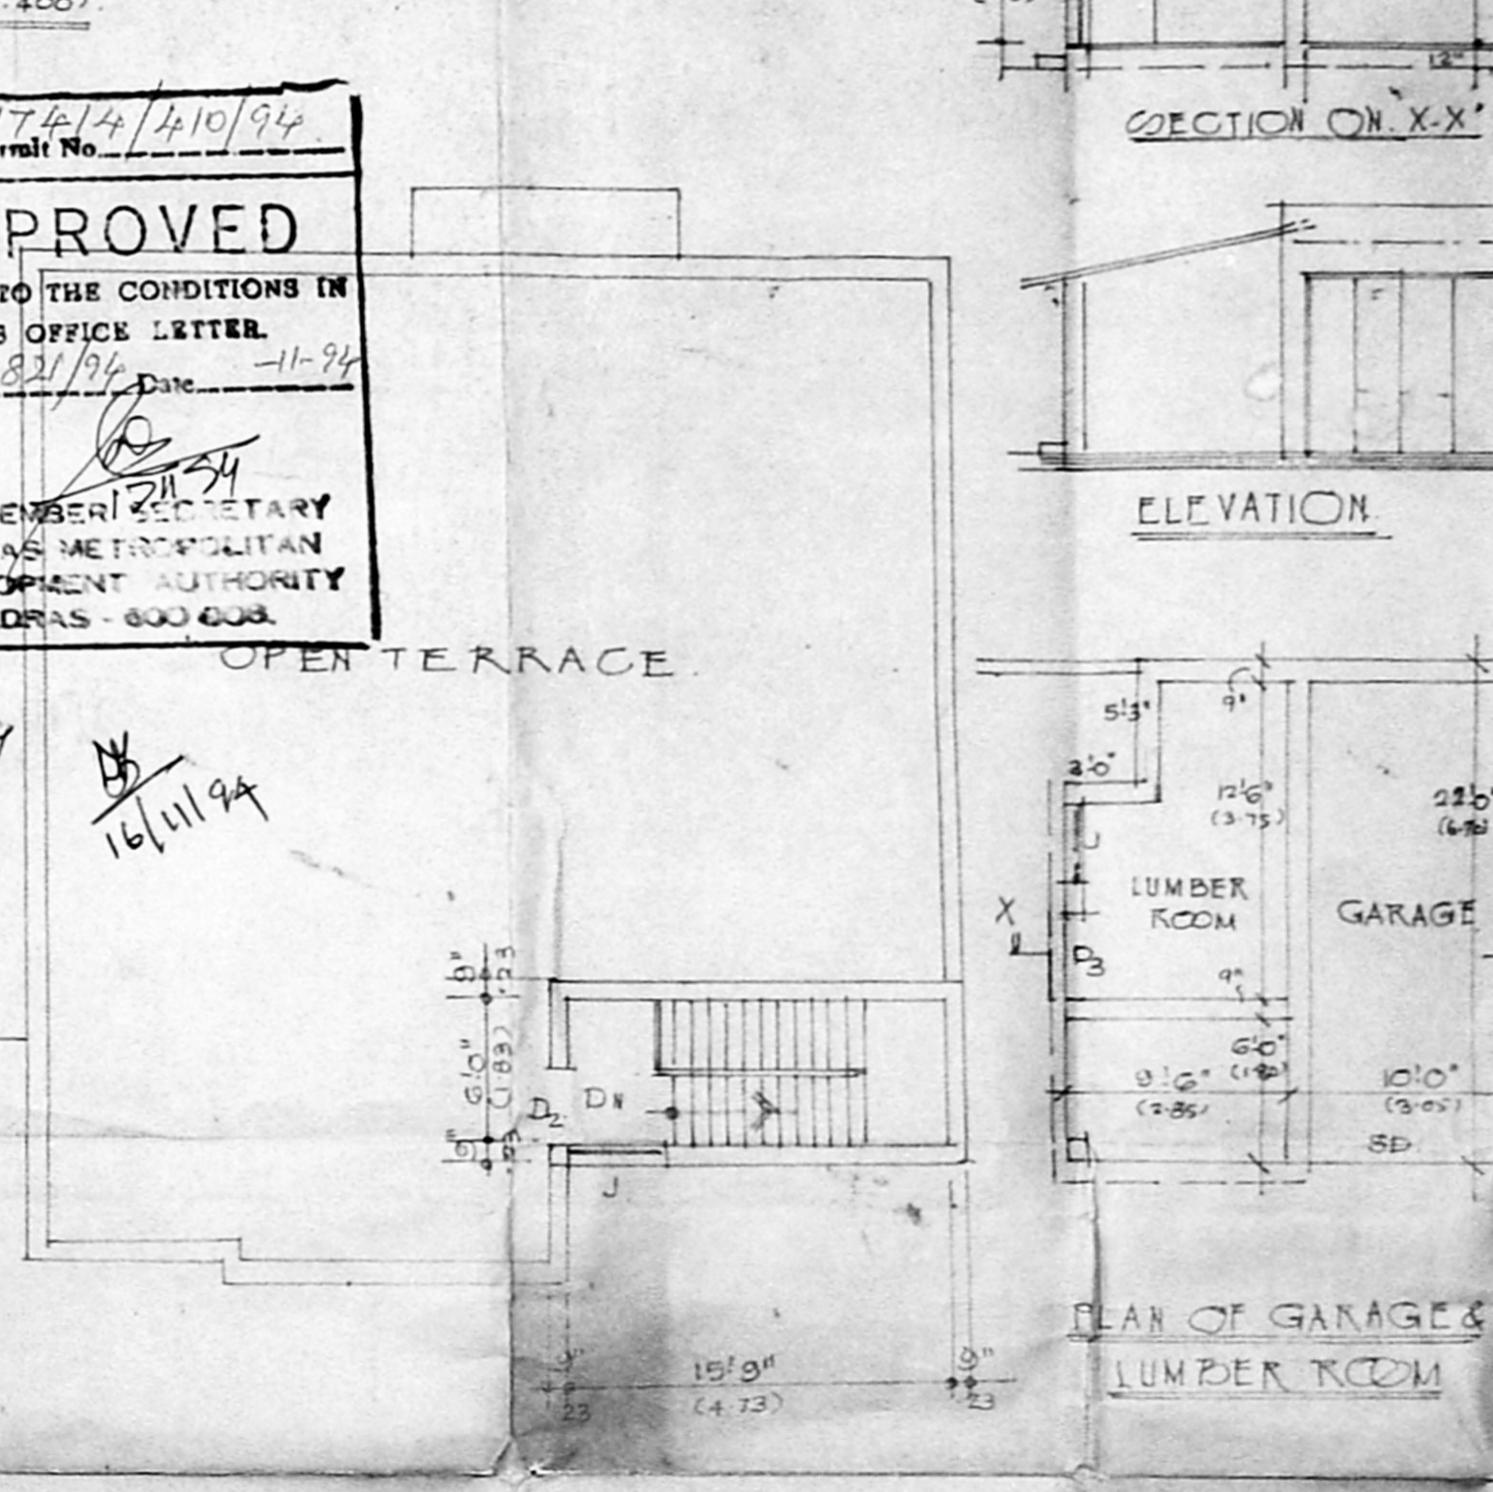 17414/410/94
rmit No
PROVED
TO THE CONDITIONS IN
S OFFICE LETTER.
821/94 Date -11-94
EMBER SECRETARY
AS METROPOLITAN
OPMENT AUTHORITY
DRAS - 600 008.
OPEN TERRACE.
16/11/94
9" .23
6'0" (1.83)
9" .23
D2
DN
J
9"
23
15'9"
(4.73)
9"
23
12"
SECTION ON 'X-X'
ELEVATION
5'3"
9"
3'0"
12'6"
(3.75)
22'0"
J
LUMBER
ROOM
GARAGE
X
D3
9"
6'0"
9'6"
(2.85)
10'0"
(3.05)
SD
PLAN OF GARAGE &
LUMBER ROOM